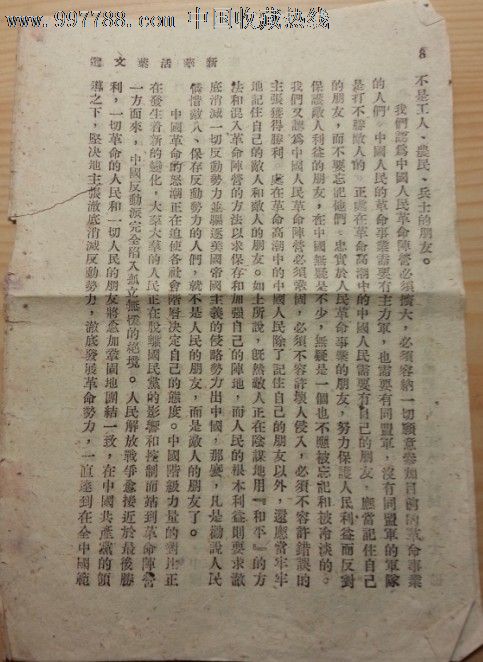 www.997788.com 中国收藏热线
新華活葉文選
8
不是工人、農民、兵士的朋友。
我們認爲中國人民革命陣營必須擴大，必須容納一切願意參加目前的革命事業
的人們。中國人民的革命事業需要有主力軍，也需要有同盟軍，沒有同盟軍的軍隊
是打不勝敵人的。正處在革命高潮中的中國人民需要有自己的朋友，應當記住自己
的朋友，而不要忘記他們。忠實於人民革命事業的朋友，努力保護人民利益而反對
保護敵人利益的朋友，在中國無疑是不少，無疑是一個也不應被忘記和被冷淡的。
我們又認爲中國人民革命陣營必須鞏固，必須不容許壞人侵入，必須不容許錯誤的
主張獲得勝利。處在革命高潮中的中國人民除了記住自己的朋友以外，還應當牢牢
地記住自己的敵人和敵人的朋友。如上所說，旣然敵人正在陰謀地用『和平』的方
法和混入革命陣營的方法以求保存和加强自己的陣地，而人民的根本利益則要求澈
底消滅一切反動勢力並驅逐美國帝國主義的侵略勢力出中國，那麽，凡是勸說人民
憐惜敵人、保存反動勢力的人們，就不是人民的朋友，而是敵人的朋友了。
中國革命的怒潮正在迫使各社會階層決定自己的態度。中國階級力量的對比正
在發生着新的變化。大羣大羣的人民正在脫離國民黨的影響和控制而站到革命陣營
一方面來，中國反動派完全陷入孤立無援的絕境。人民解放戰爭愈接近於最後勝
利，一切革命的人民和一切人民的朋友將愈加鞏固地團結一致，在中國共產黨的領
導之下，堅決地主張澈底消滅反動勢力，澈底發展革命勢力，一直達到在全中國範